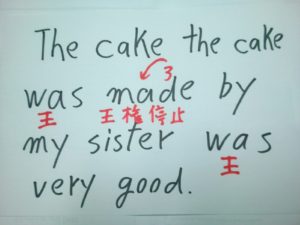 The cake the cake
3
was made by
王 王権停止
my sister was
王
very good.